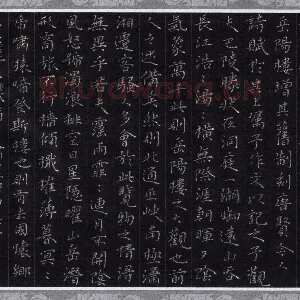 岳陽樓增其舊制刻唐賢今人
詩賦於其上屬予作文以記之予觀
夫巴陵勝狀在洞庭一湖銜遠山吞
長江浩浩湯湯橫無際涯朝暉夕陰
氣象萬千此則岳陽樓之大觀也前
人之述備矣然則北通巫峽南極瀟
湘遷客騷人多會於此覽物之情得
無異乎若夫霪雨霏霏連月不開陰
風怒號濁浪排空日星隱曜山岳潛
形商旅不行檣傾楫摧薄暮冥冥
虎嘯猿啼登斯樓也則有去國懷鄉